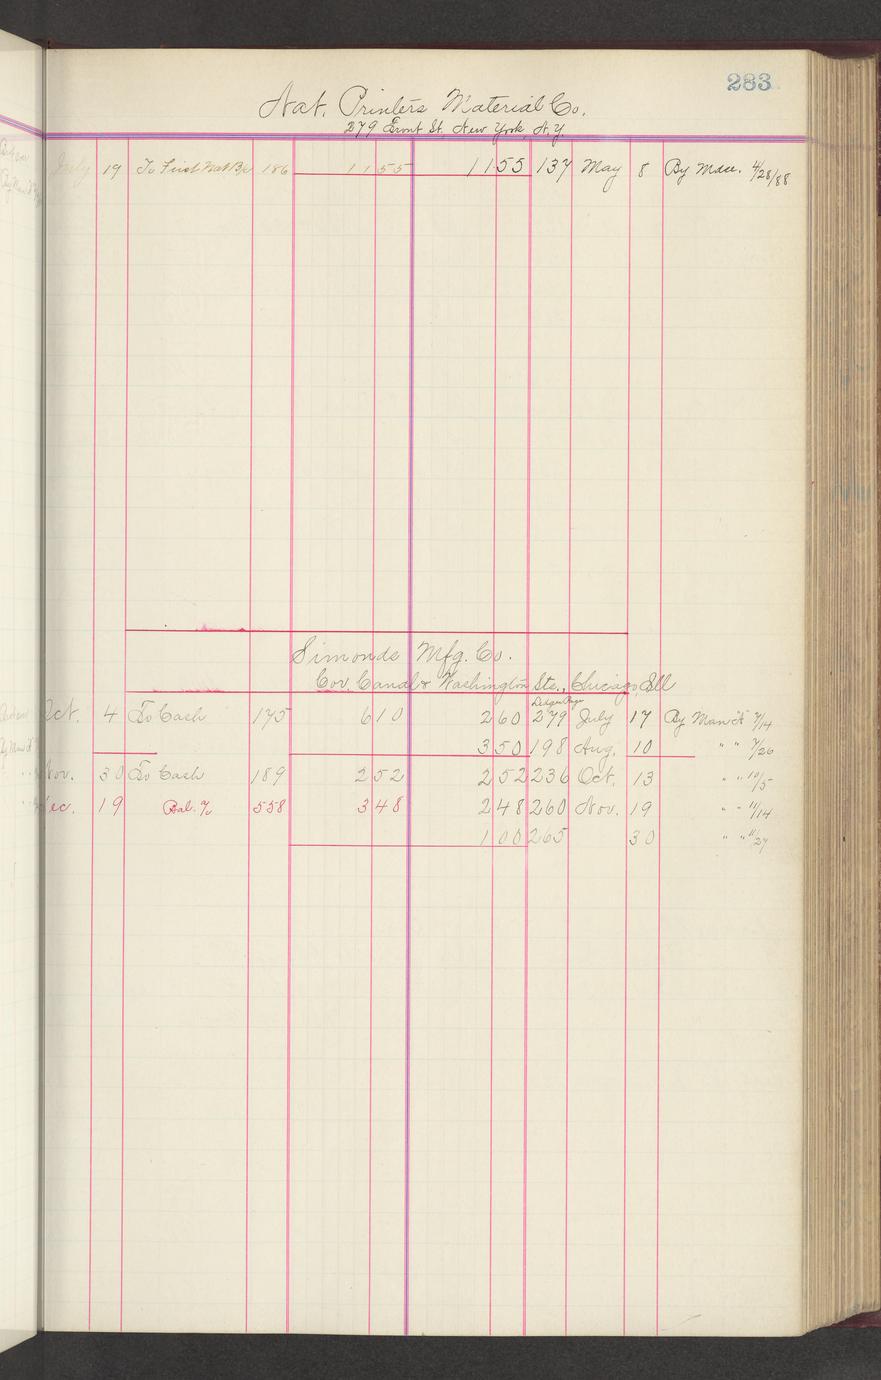 283
Nat. Printers Material Co.
279 Front St. New York N.Y.
July 19 To First Nat Bk 186 11 55 11 55 137 May 8 By Mdse. 4/28/88
Simonds Mfg. Co.
Cor. Canal & Washington Sts., Chicago, Ill
Ledger Page
Oct. 4 To Cash 175 6 10 2 60 279 July 17 By Man'd't 7/14
3 50 198 Aug. 10 " " 7/26
Nov. 30 To Cash 189 2 52 2 52 236 Oct. 13 " " 10/5
Dec. 19 Bal. 558 3 48 2 48 260 Nov. 19 " " 11/14
1 00 265 30 " " 11/27